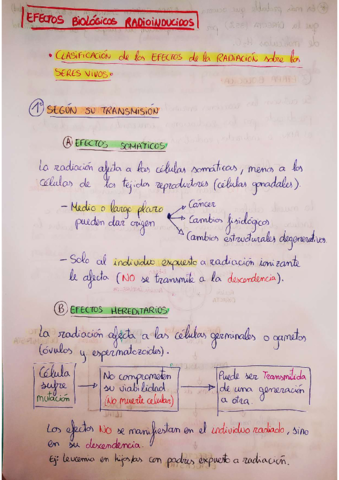 EFECTOS BIOLÓGICOS RADIOINDUCIDOS
• CLASIFICACIÓN de los EFECTOS de la RADIACIÓN sobre los
SERES VIVOS•
1º SEGÚN SU TRANSMISIÓN
A EFECTOS SOMÁTICOS
La radiación afecta a las células somáticas, menos a las
células de los tejidos reproductores (células gonadales)
— Medio o largo plazo
pueden dar origen
Cáncer
Cambios fisiológicos
Cambios estructurales degenerativos
— Solo al individuo expuesto a radiación ionizante
le afecta (NO se transmite a la descendencia).
B EFECTOS HEREDITARIOS
La radiación afecta a las células germinales o gametos
(óvulos y espermatozoides).
Célula
sufre
mutación
No comprometen
su viabilidad
(No muerte celular)
Puede ser transmitida
de una generación
a otra.
Los efectos NO se manifiestan en el individuo radiado, sino
en su descendencia.
Ej: leucemia en hijos/as con padres expuesto a radiación.